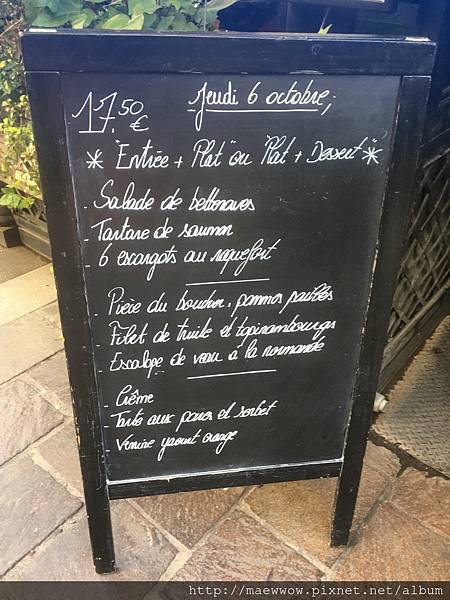 17.50 €
Jeudi 6 octobre;
* "Entrée + Plat" ou "Plat + Dessert" *
- Salade de betteraves
- Tartare de saumon
- 6 escargots au roquefort
- Pièce du boucher, pommes paillées
- Filet de truite et topinambourgs
- Escalope de veau à la normande
- Crème
- Tarte aux poires et sorbet
- Verrine yaourt orange
http://maewwow.pixnet.net/album